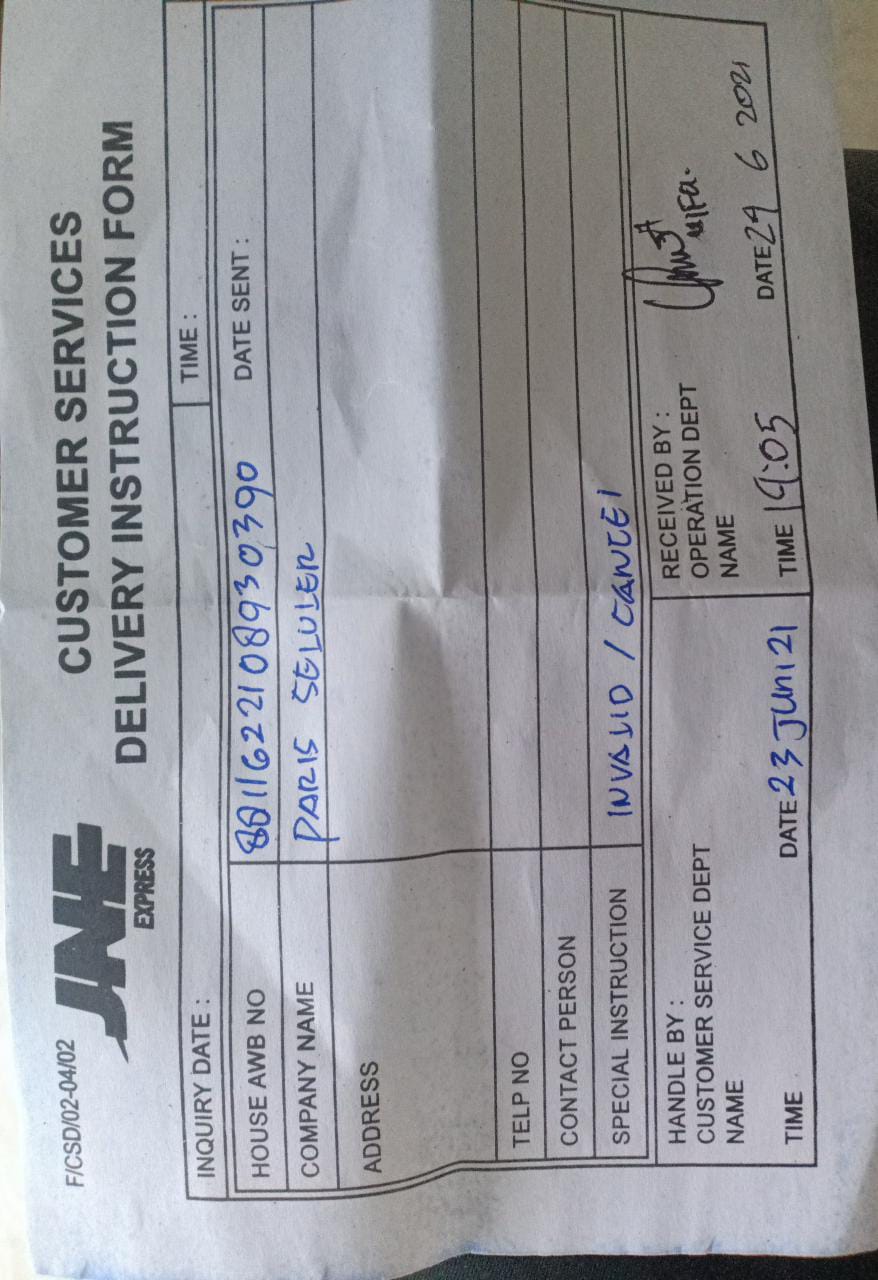 F/CSD/02-04/02
JNE
EXPRESS
CUSTOMER SERVICES
DELIVERY INSTRUCTION FORM
INQUIRY DATE :
TIME :
HOUSE AWB NO 8811622108930390 DATE SENT :
COMPANY NAME PARIS SELULER
ADDRESS
TELP NO
CONTACT PERSON
SPECIAL INSTRUCTION INVALID / CANCEl
HANDLE BY :
CUSTOMER SERVICE DEPT
NAME
TIME DATE 23 JUNI 21
RECEIVED BY :
OPERATION DEPT
NAME
TIME 19:05 DATE 6 2021